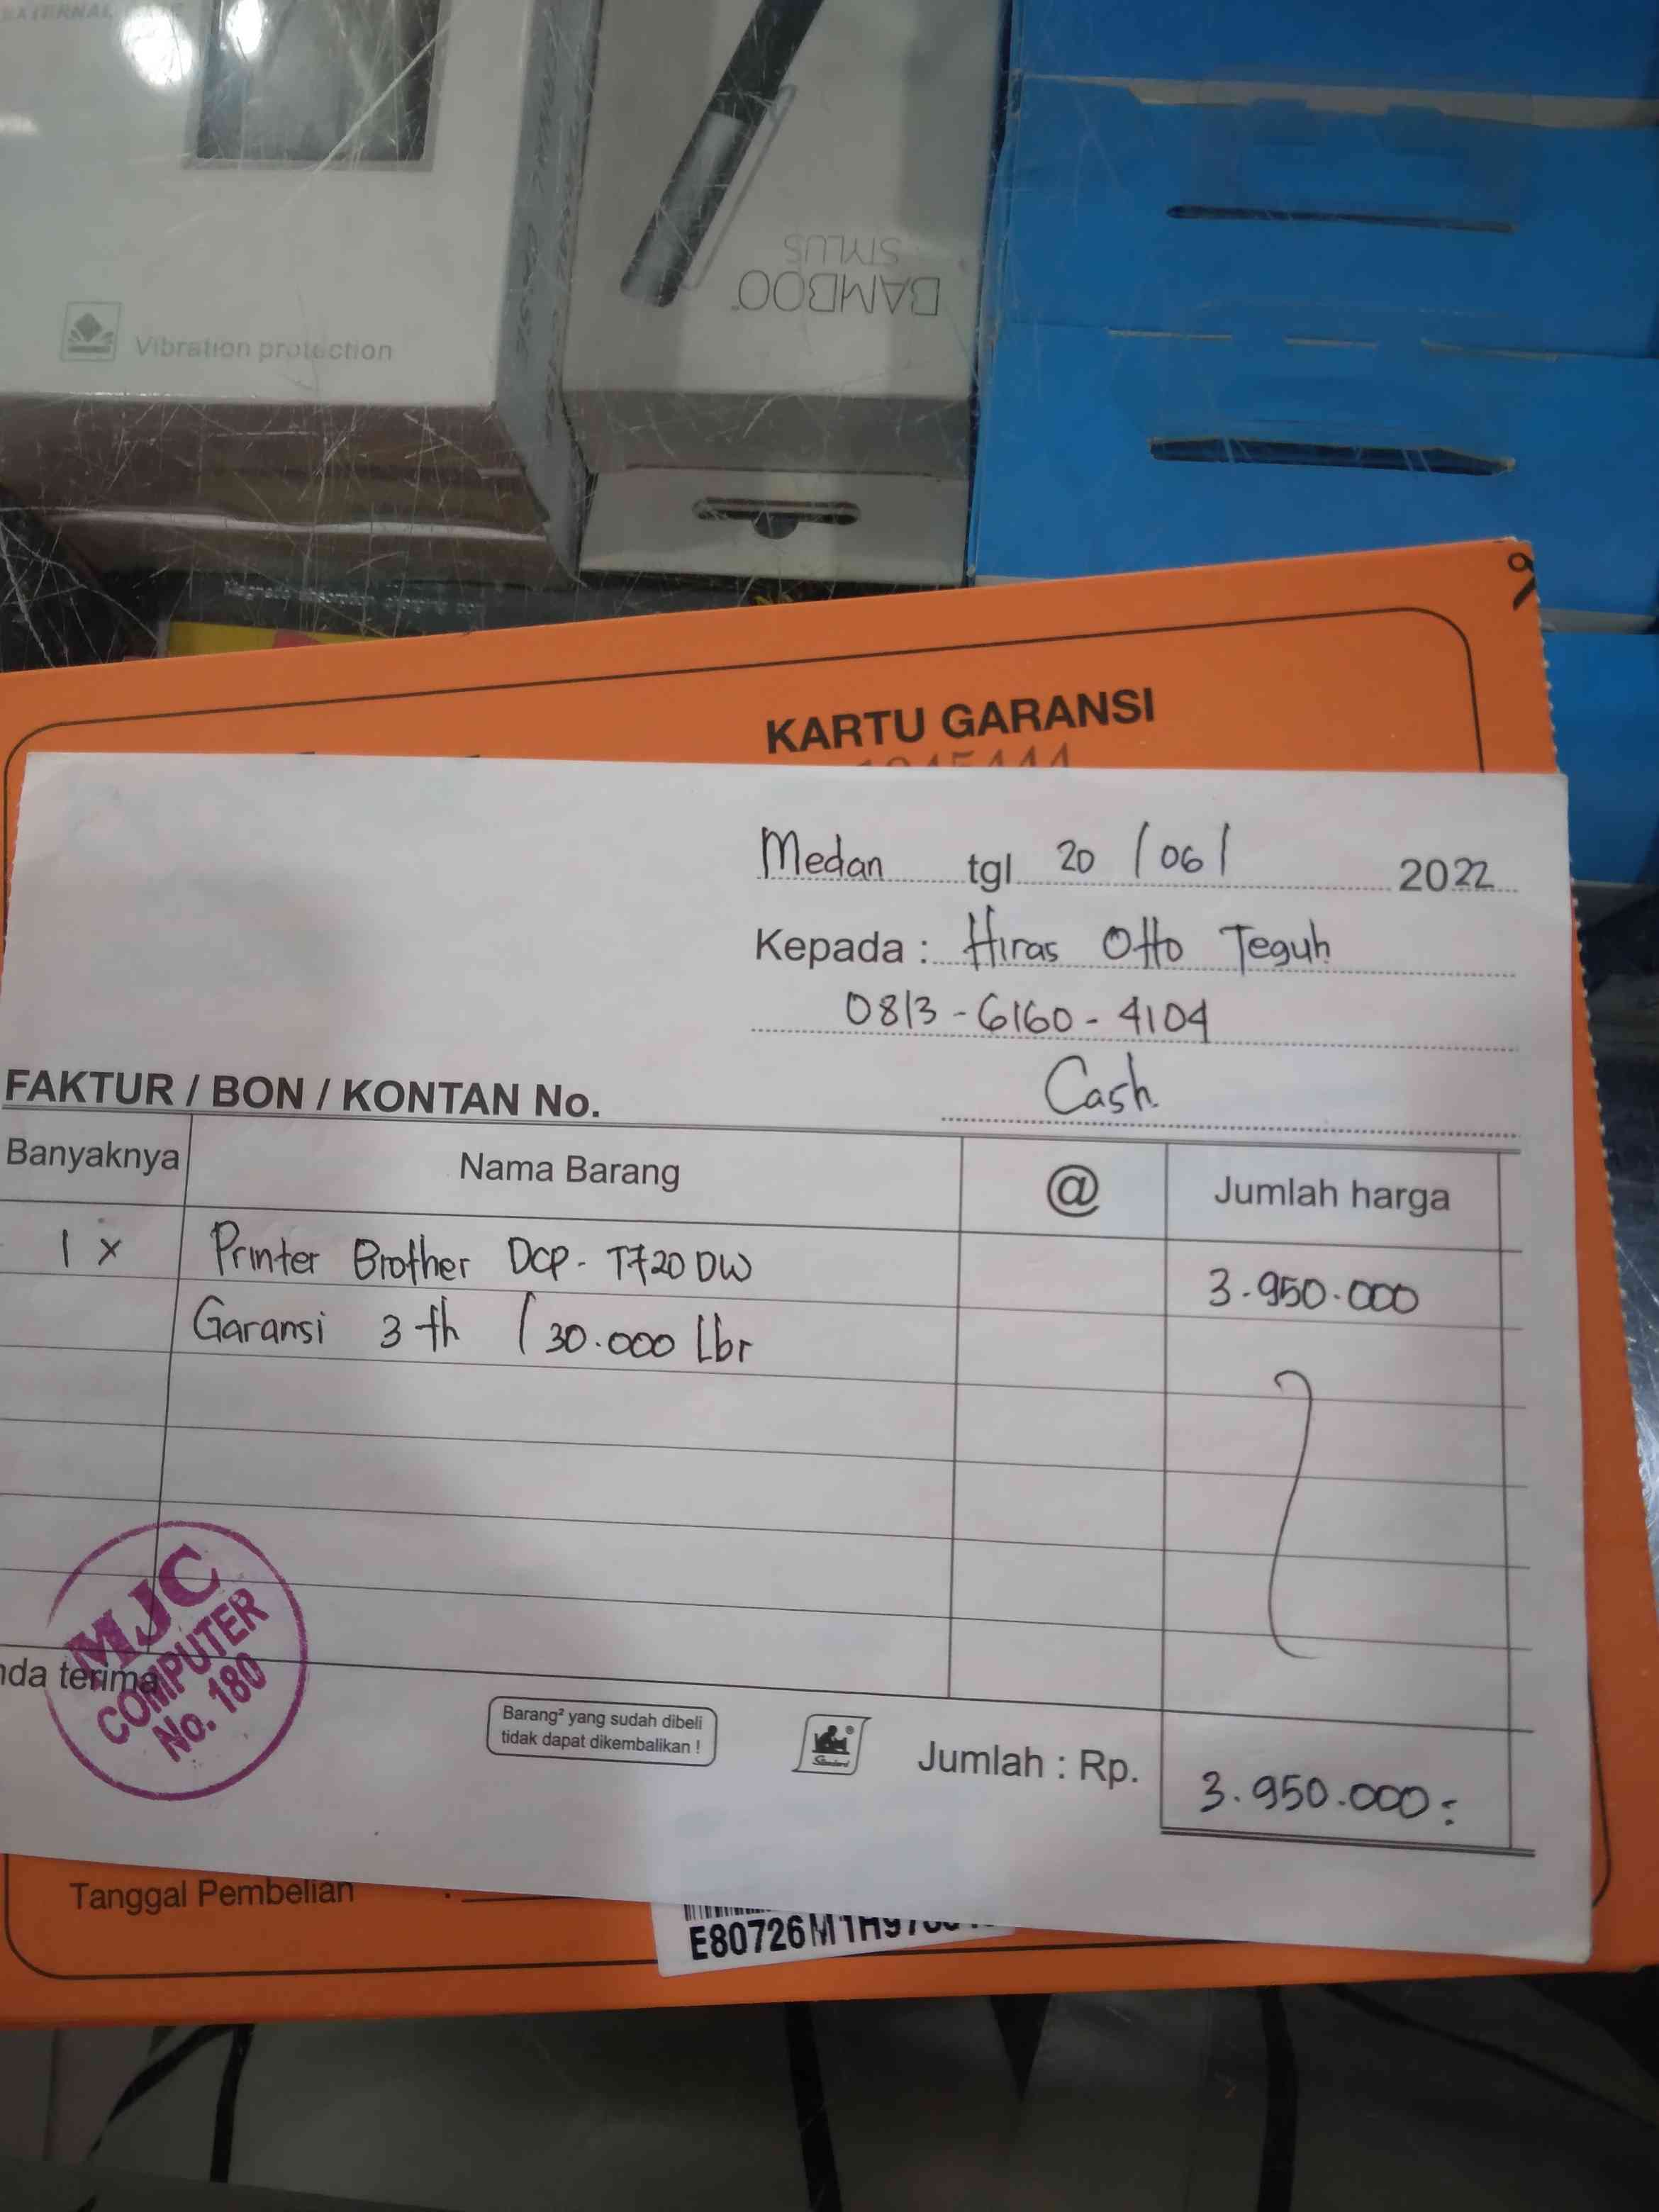 EXTERNAL
Vibration protection
BAMBOO
STYLUS
KARTU GARANSI
Medan tgl 20 / 06 / 2022
Kepada : Hiras Otto Teguh
0813 - 6160 - 4104
Cash
FAKTUR / BON / KONTAN No.
Banyaknya Nama Barang @ Jumlah harga
1 x Printer Brother DCP - T720DW 3.950.000
Garansi 3 th / 30.000 Lbr
MJC
COMPUTER
No. 180
nda terima
Barang² yang sudah dibeli
tidak dapat dikembalikan !
Standard
Jumlah : Rp. 3.950.000:
Tanggal Pembelian :